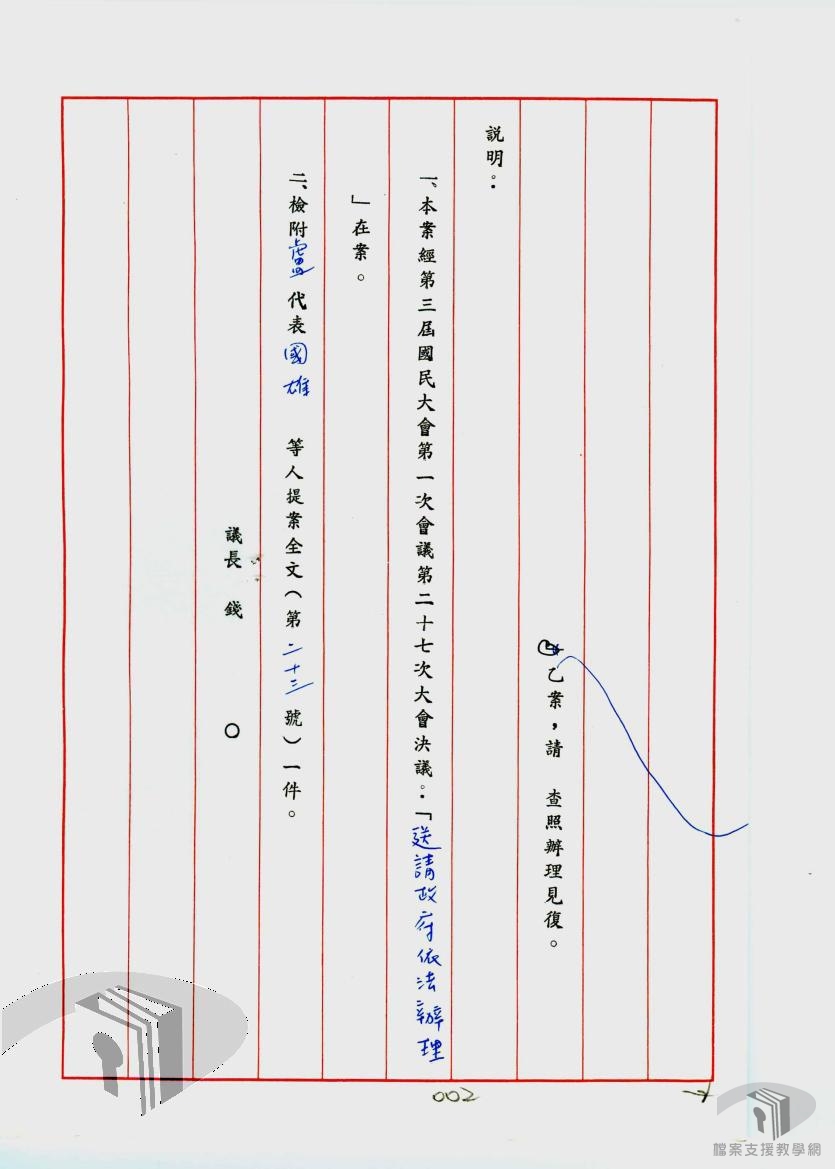 乙案，請　查照辦理見復。
說明：
一、本案經第三屆國民大會第一次會議第二十七次大會決議：「送請政府依法辦理
」在案。
二、檢附盧代表國雄　等人提案全文（第二十三號）一件。
議長　錢　　○
002
檔案支援教學網